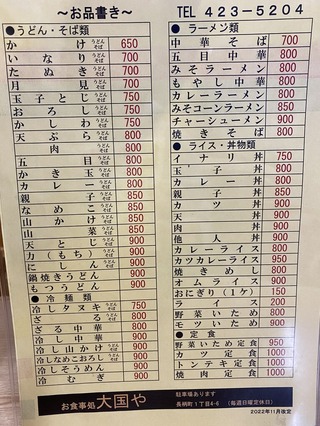 ～お品書き～
●うどん・そば類
かけ うどん そば 650
いなり うどん そば 700
たぬき うどん そば 700
月見 うどん そば 700
玉子とじ うどん そば 750
おろし うどん そば 750
かしわ うどん そば 750
天ぷら うどん そば 800
肉 うどん そば 800
五目 うどん そば 800
かき玉 うどん そば 800
カレー うどん そば 800
親子 うどん そば 850
なめこ うどん そば 850
山かけ うどん そば 850
山菜 うどん そば 850
天とじ うどん そば 900
力(もち) うどん そば 900
にしん うどん そば 900
鍋焼きうどん 900
もつうどん 900
●冷麺類
冷しタヌキ うどん そば 750
ざる うどん そば 800
ざる中華 800
冷し中華 900
冷し山かけ うどん そば 900
冷しなめこおろし うどん そば 900
冷しそうめん 900
冷むぎ 900
TEL 423-5204
●ラーメン類
中華そば 700
五目中華 800
みそラーメン 800
もやし中華 800
カレーラーメン 800
みそコーンラーメン 850
チャーシューメン 900
焼きそば 800
●ライス・丼物類
イナリ丼 750
玉子丼 800
カレー丼 800
親子丼 850
カツ丼 900
天丼 900
肉丼 900
他人丼 900
カレーライス 900
カツカレーライス 950
焼きめし 800
オムライス 900
おにぎり(1ケ) 150
ライス 200
野菜いため 800
モツいため 900
●定食
野菜いため定食 950
カツ定食 1000
トンテキ定食 1000
焼肉定食 1000
お食事処 大国や
駐車場あります
長柄町1丁目4-6 (毎週日曜定休日)
2022年11月改定